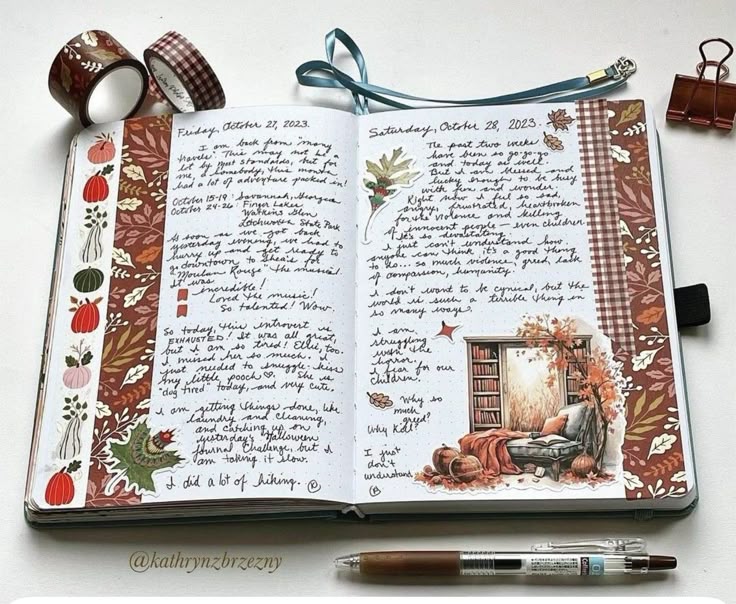 Friday, October 27, 2023.
I am back from "many
travels." This may not be a
lot by most standards, but for
me, a homebody, this month
had a lot of adventure packed in!
October 15-19: Savannah, Georgia
October 24-26: Finger Lakes
Watkins Glen
Letchworth State Park
As soon as we got back
yesterday evening, we had to
hurry up and get ready to
go downtown to Shea's for
"Moulin Rouge" the musical.
It was
incredible!
Loved the music!
So talented! Wow.
So today, this introvert is
EXHAUSTED! It was all great,
but I am so tired! Ellie, too.
I missed her so much. I
just needed to snuggle-kiss
my little pooch ♡. She is
"dog tired" today, and very cute.
I am getting things done, like
laundry and cleaning,
and catching up on
yesterday's Halloween
Journal Challenge, but I
am taking it slow.
I did a lot of hiking.
Saturday, October 28, 2023.
The past two weeks
have been so go-go-go
and today as well.
But I am blessed and
lucky enough to be busy
with fun and wonder.
Right now I feel so sad,
angry, frustrated, heartbroken
for the violence and killing
of innocent people - even children.
It's so devastating.
I just can't understand how
anyone can think it's a good thing
to do... so much violence, greed, lack
of compassion, humanity.
I don't want to be cynical, but the
world is such a terrible thing in
so many ways
I am
struggling
with the
horror.
I fear for our
children.
Why so
much
greed?
Why kill?
I just
don't
understand
@kathrynzbrzezny